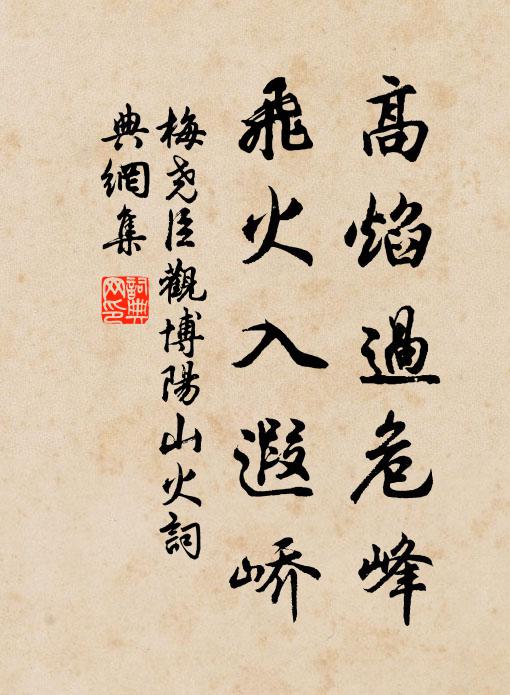 高焰過危峰
飛火入遐嶠
梅堯臣觀博陽山火詞
典網集
詞典
网印